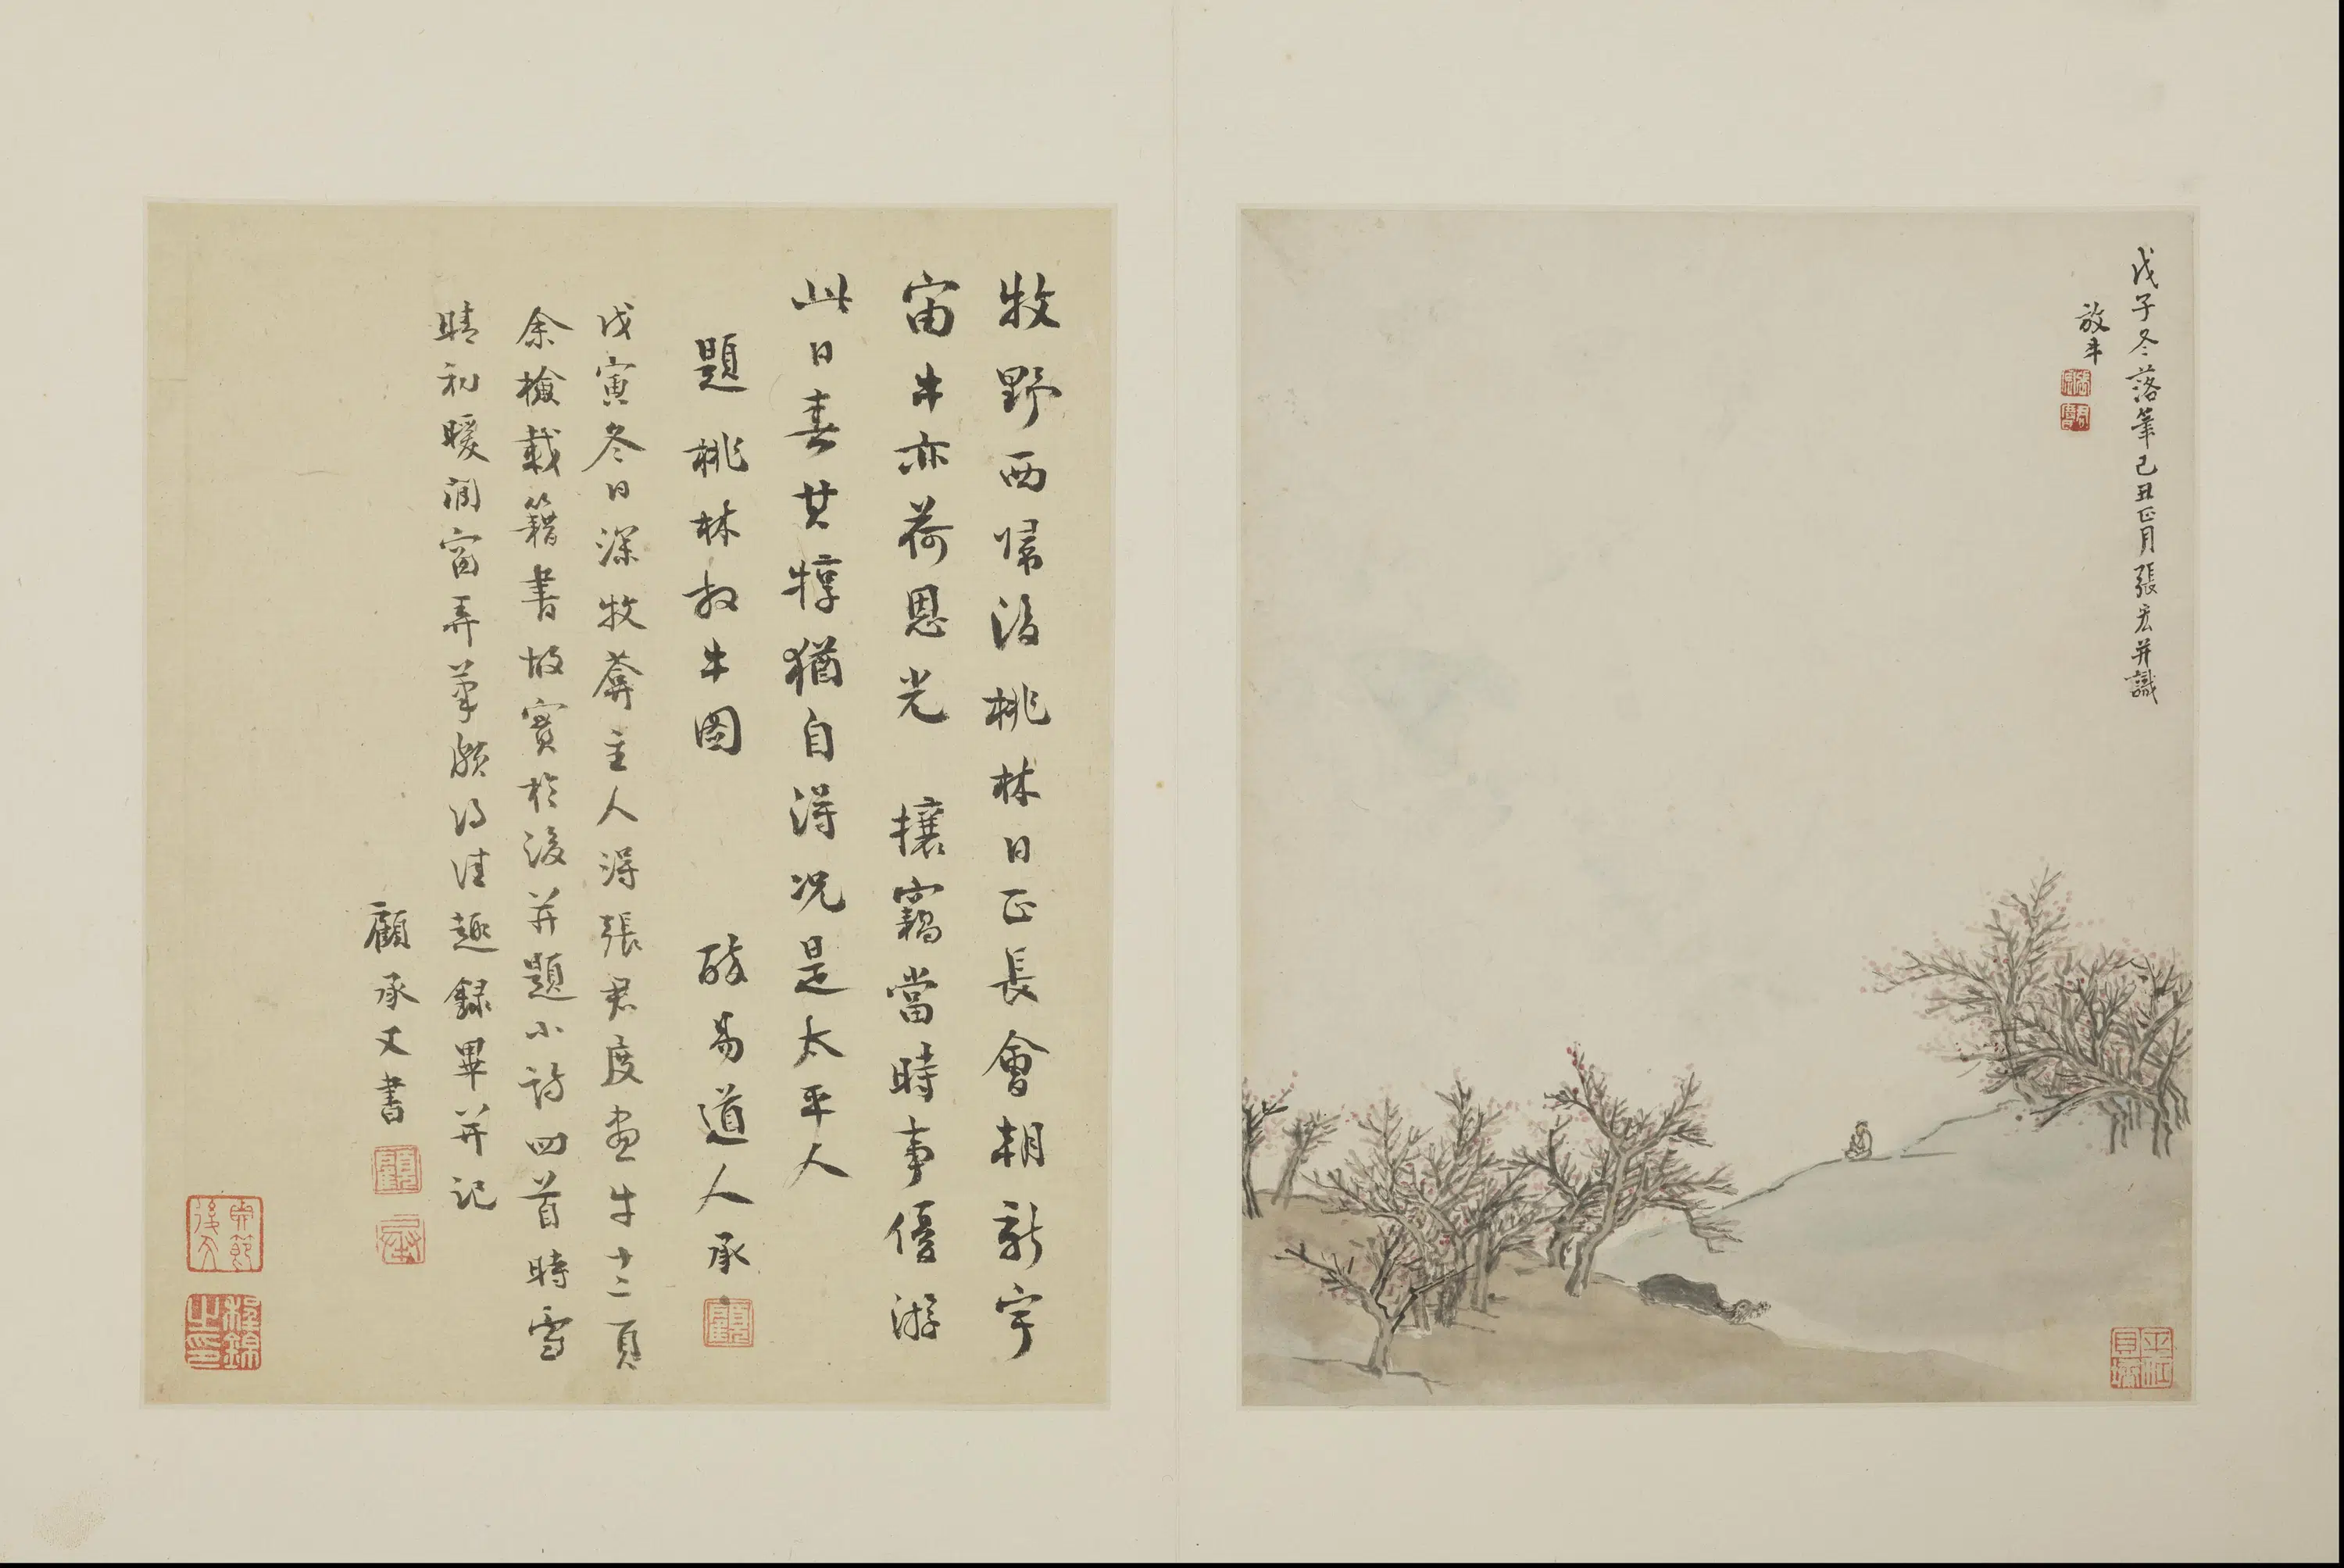 戊子冬落筆己丑正月張宏并識
放牛
牧野西歸後桃林日正長會朝新宇
宙牛亦荷恩光 攘竊當時事優游
此日春其犉猶自得况是太平人
題桃林放牛圖 醉易道人承
戊寅冬日深牧葊主人得張君度畫牛十二頁
余檢載籍書故實於後并題小詩四首時雪
晴初暖潤窗弄筆頗得佳趣錄畢并記
顧承又書